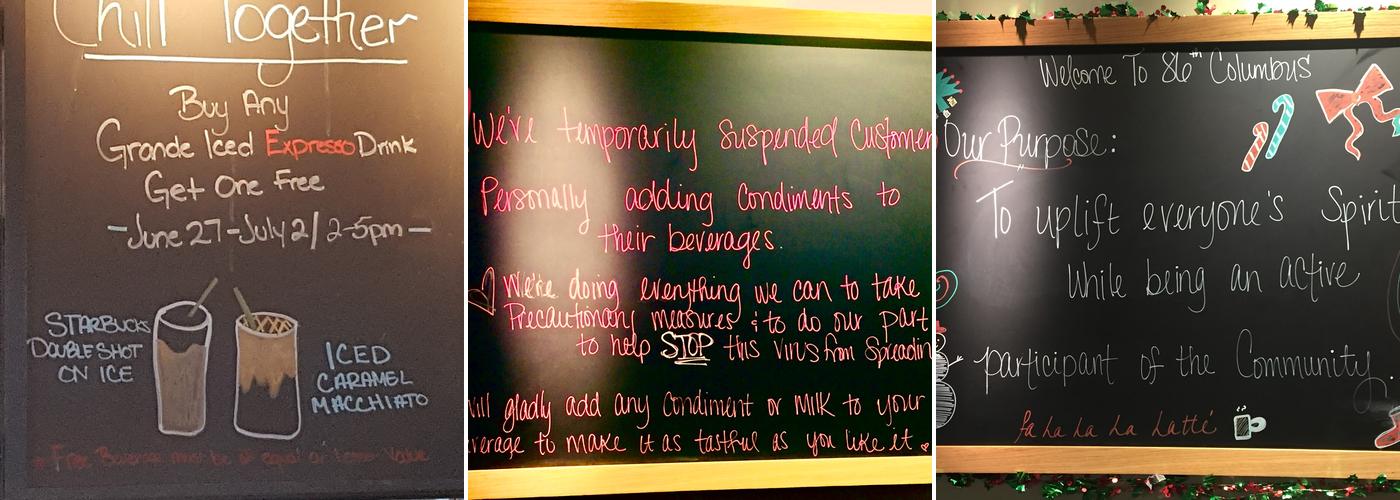 Chill Together
Buy Any
Grande Iced Expresso Drink
Get One Free
-June 27-July 2/ 2-5pm-
STARBUCKS
DOUBLESHOT
ON ICE
ICED
CARAMEL
MACCHIATO
* Free Beverage must be of equal or Lesser Value
We've temporarily suspended Customer
Personally adding Condiments to
their beverages.
We're doing everything we can to take
Precautionary measures & to do our part
to help STOP this virus from Spreadin
will gladly add any Condiment or Milk to your
verage to make it as tastful as you like it
Welcome To 86th Columbus
Our Purpose:
To uplift everyone's Spirit
While being an active
participant of the Community.
fa la la la Latté